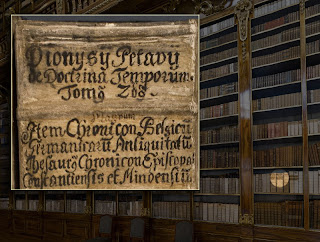 Dionysy Petavij
de Doctrina Temporum.
Tomq 2dq.
Item Chronicon Belgicū
Germanicarū Antiquitatū
Chronicon Episcopat
Constantiensis et Mindensiū